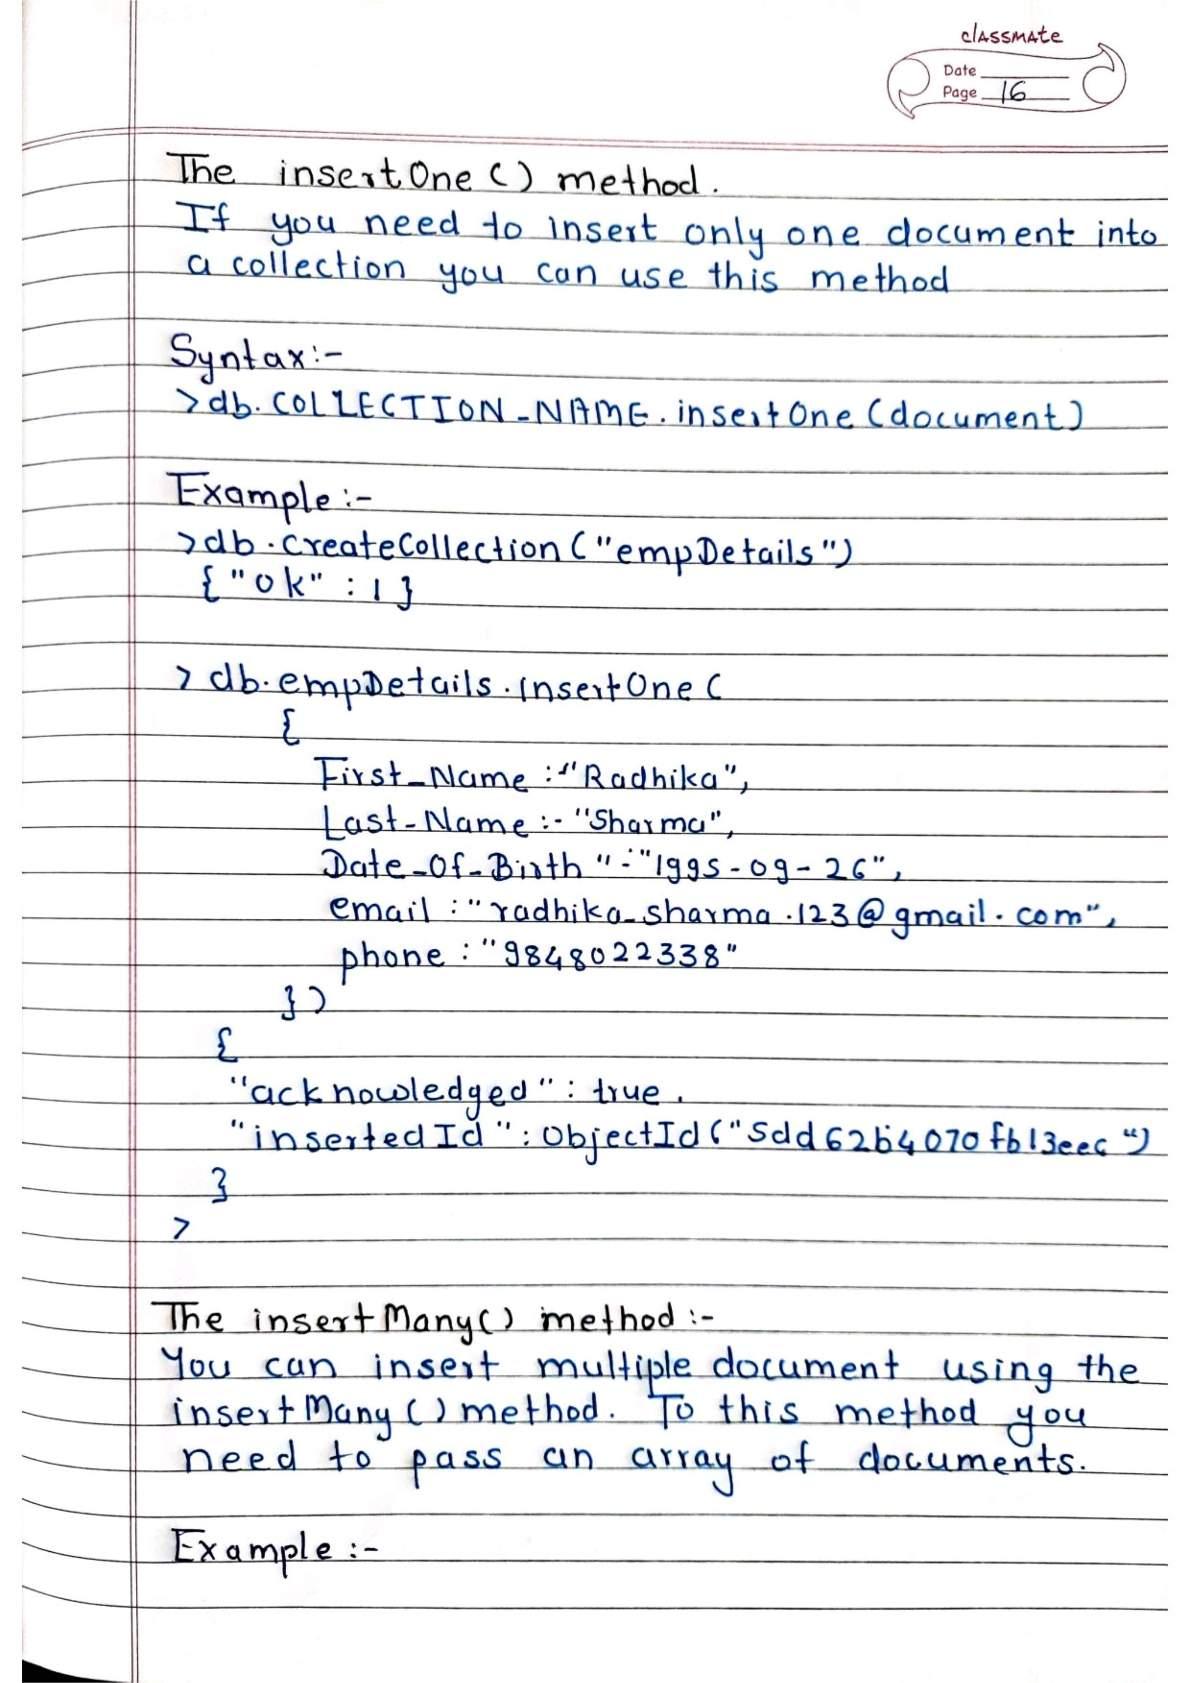 classmate
Date
Page 16
The insertOne() method.
If you need to insert only one document into
a collection you can use this method
Syntax:-
>db.COLLECTION_NAME.insertOne(document)
Example:-
>db.createCollection("empDetails")
{"ok" : 1}
> db.empDetails.insertOne(
{
First_Name :"Radhika",
Last-Name :- "Sharma",
Date_Of_Birth " : "1995-09-26",
email : "radhika_sharma.123@gmail.com",
phone : "9848022338"
})
{
"acknowledged" : true.
"insertedId" : ObjectId("5dd62b4070fb13eec")
}
>
The insertMany() method :-
You can insert multiple document using the
insertMany() method. To this method you
need to pass an array of documents.
Example :-